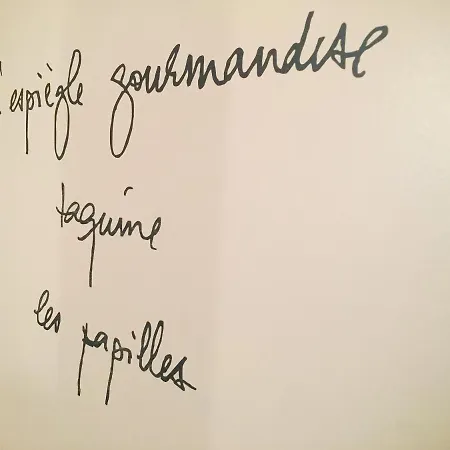 l'espiègle gourmandise
taquine
les papilles